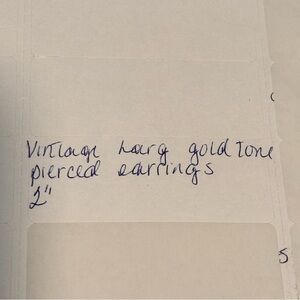 Vintage larg gold tone
pierced earrings
2"
s